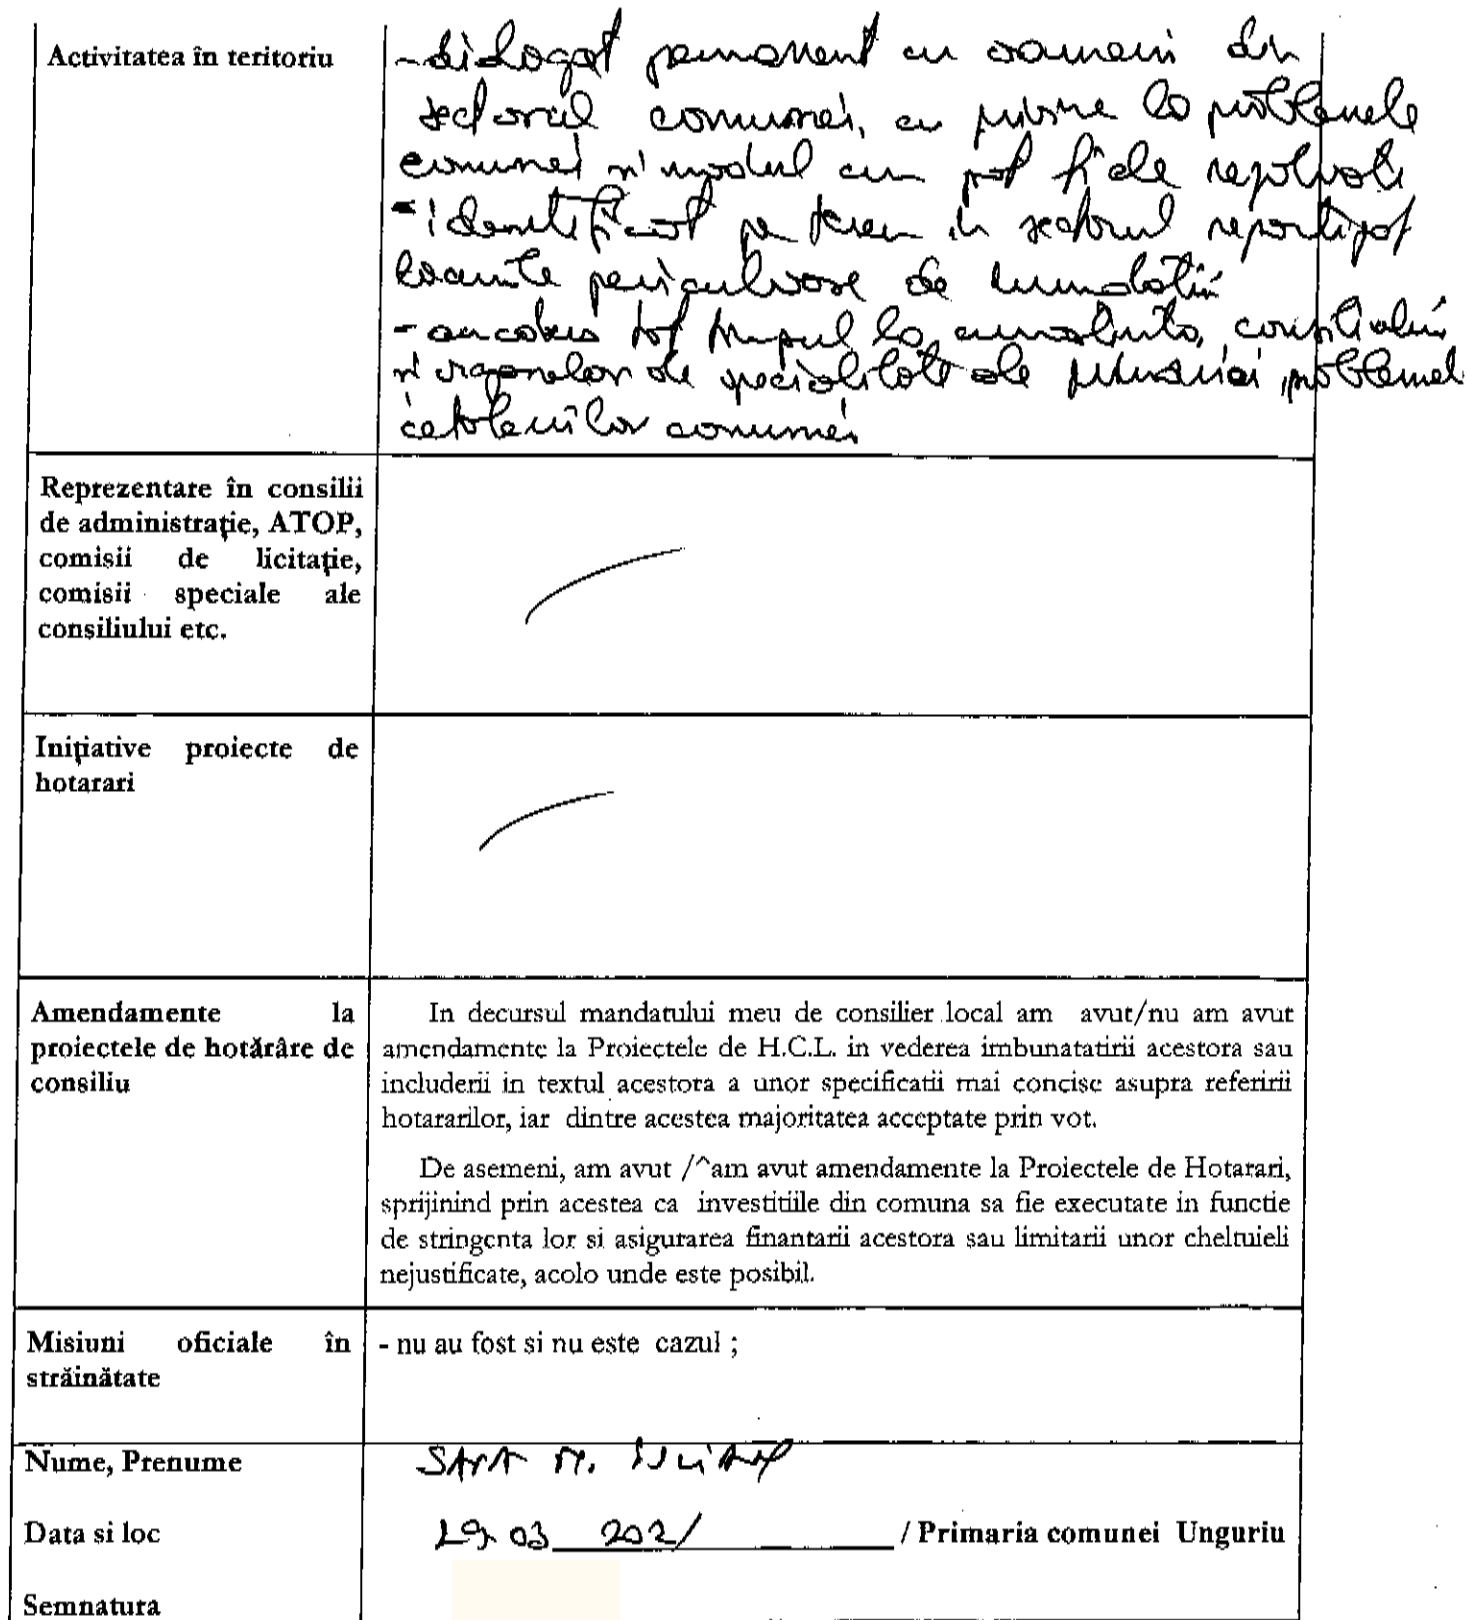 Activitatea în teritoriu
- dialogat permanent cu oameni din
sectorul comunei, cu privire la problemele
comunei și modul cum pot fi ele rezolvate
- identificat pe teren in sectorul repartizat
locurile periculoase de inundatii
- am adus tot timpul la cunostinta, consiliului
si organelor de specialitate ale primariei, problemele
cetatenilor comunei
Reprezentare în consilii
de administraţie, ATOP,
comisii de licitaţie,
comisii speciale ale
consiliului etc.
Iniţiative proiecte de
hotarari
Amendamente la
proiectele de hotărâre de
consiliu
In decursul mandatului meu de consilier local am avut/nu am avut
amendamente la Proiectele de H.C.L. in vederea imbunatatirii acestora sau
includerii in textul acestora a unor specificatii mai concise asupra referirii
hotararilor, iar dintre acestea majoritatea acceptate prin vot.
De asemeni, am avut /^am avut amendamente la Proiectele de Hotarari,
sprijinind prin acestea ca investitiile din comuna sa fie executate in functie
de stringenta lor si asigurarea finantarii acestora sau limitarii unor cheltuieli
nejustificate, acolo unde este posibil.
Misiuni oficiale în
străinătate
- nu au fost si nu este cazul ;
Nume, Prenume
M.
Data si loc
29 03 2021 / Primaria comunei Unguriu
Semnatura